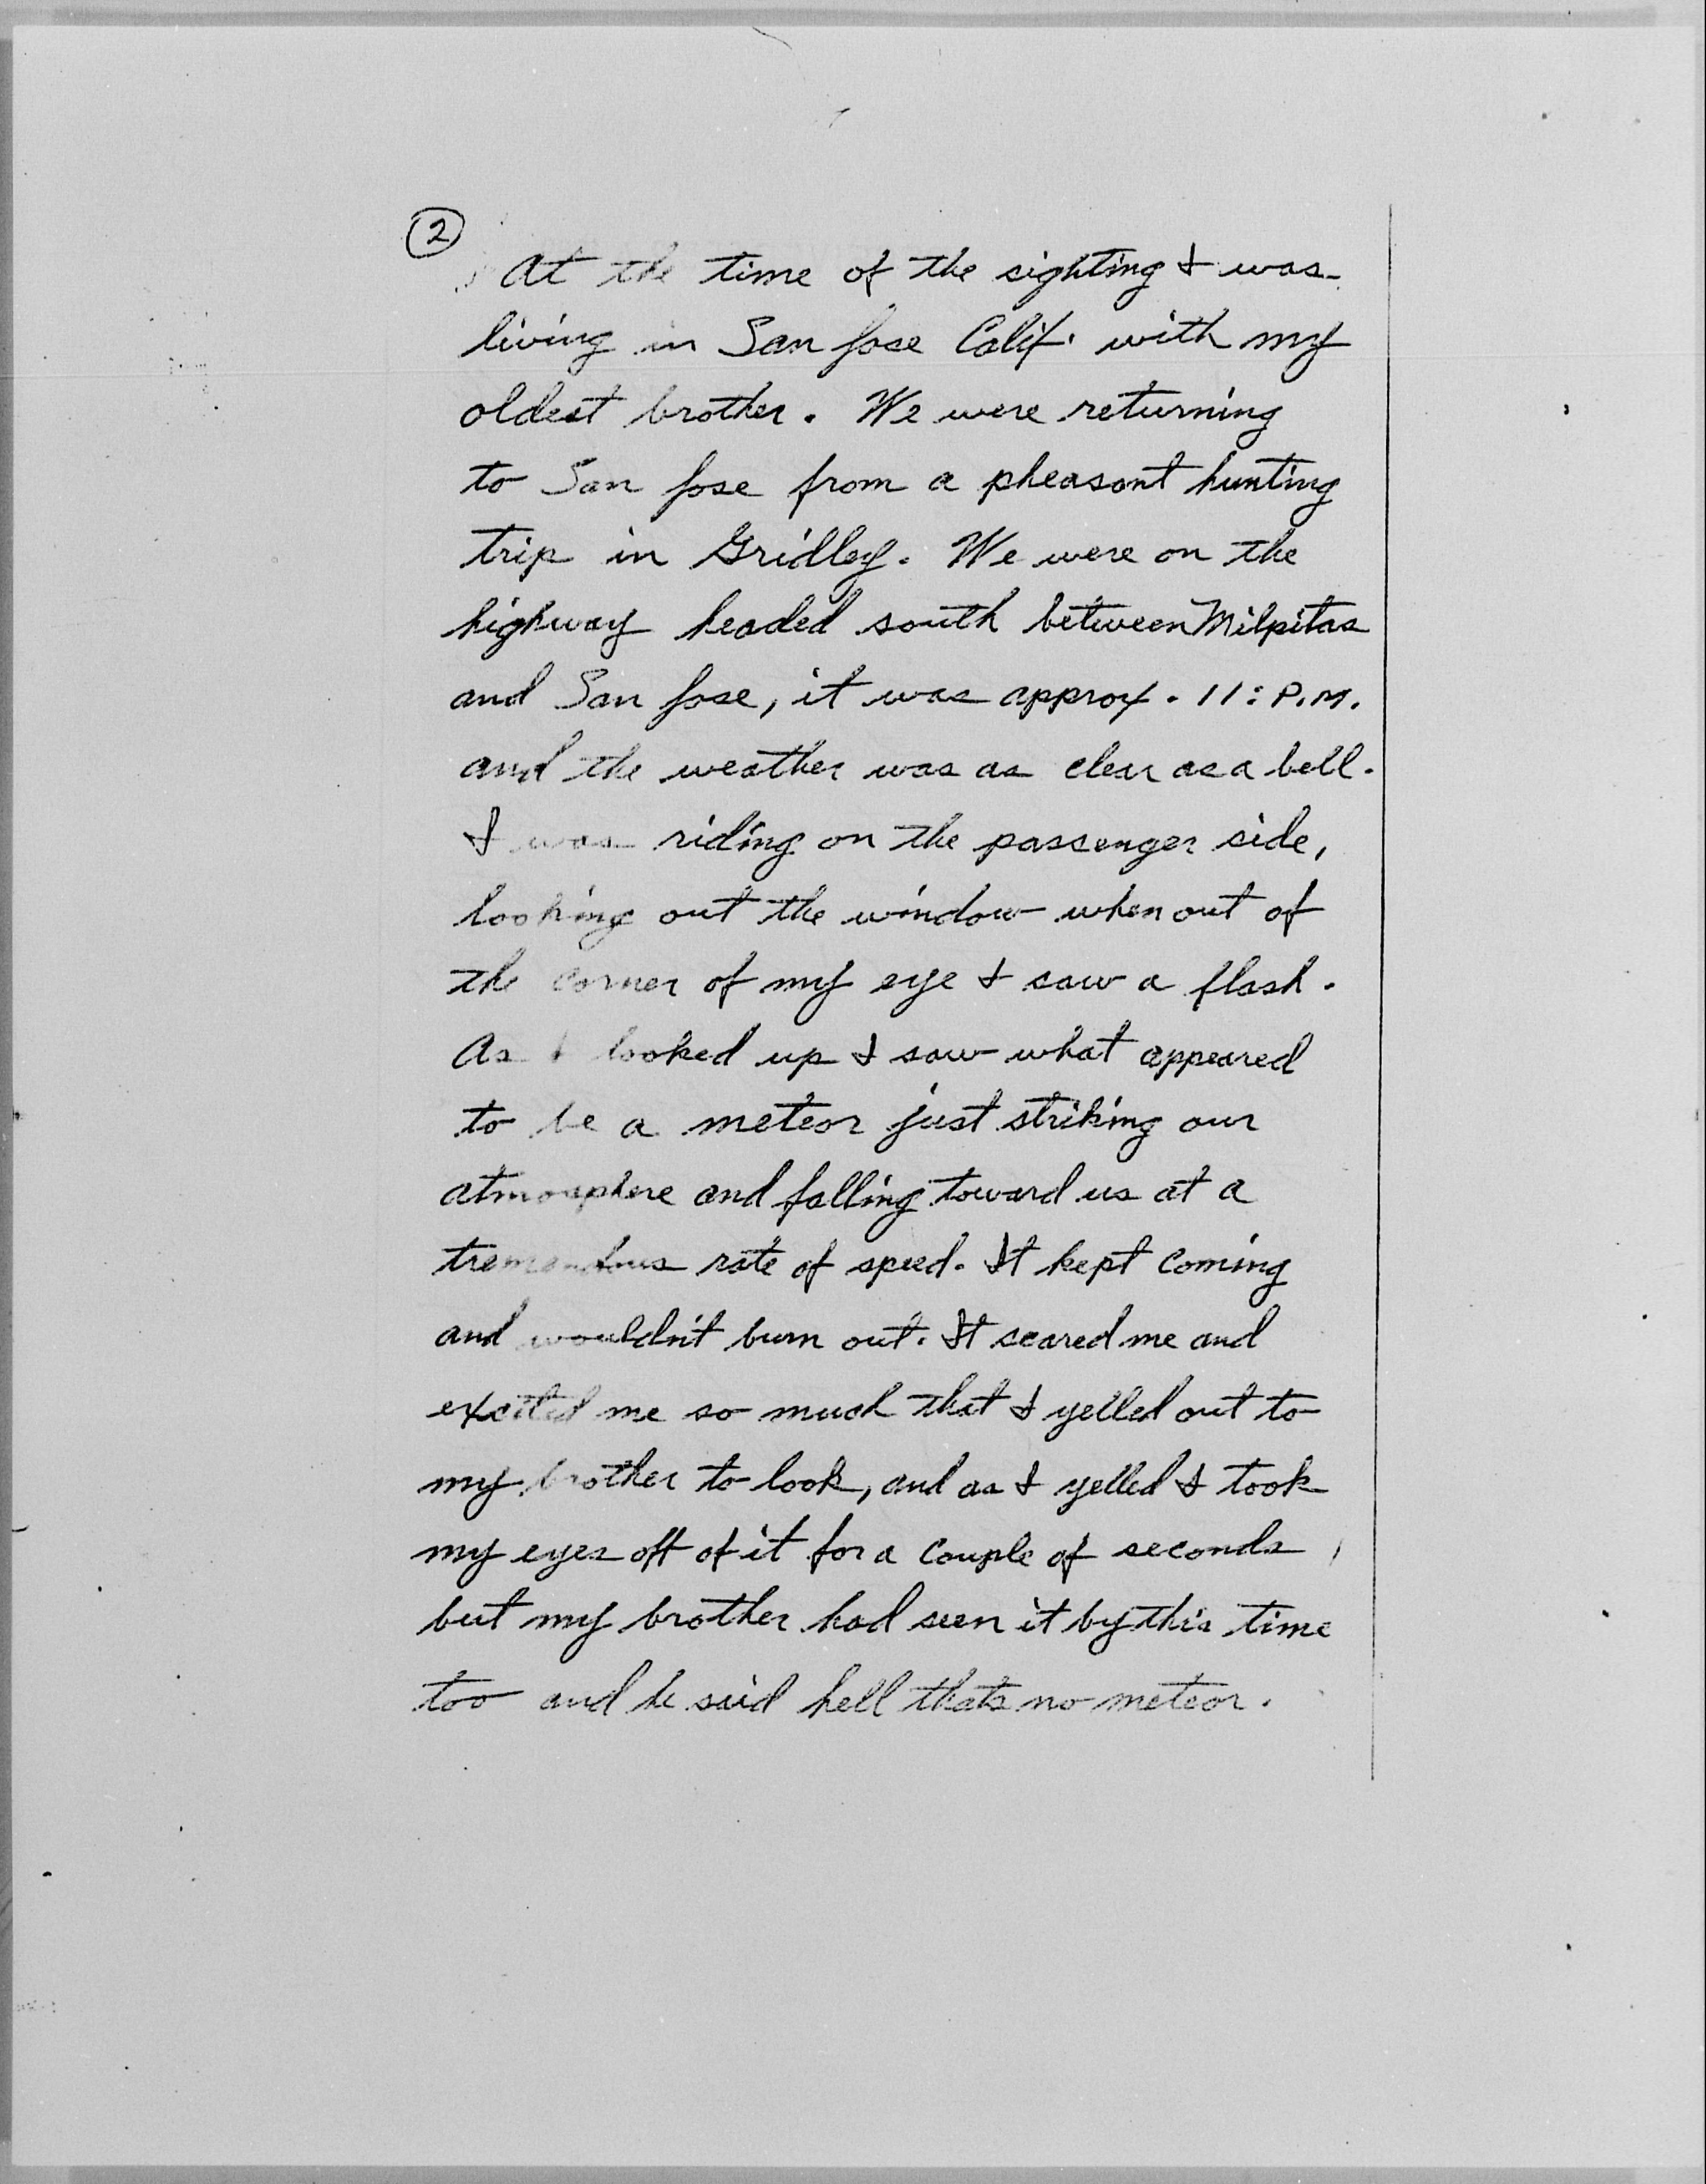 2
At the time of the sighting I was
living in San Jose Calif. with my
oldest brother. We were returning
to San Jose from a pheasont hunting
trip in Gridley. We were on the
highway headed south between Milpitas
and San Jose, it was approx. 11: P.M.
and the weather was as clear as a bell.
I was riding on the passenger side,
looking out the window when out of
the corner of my eye I saw a flash.
As I looked up I saw what appeared
to be a meteor just striking our
atmosphere and falling toward us at a
tremendous rate of speed. It kept coming
and wouldn't burn out. It scared me and
excited me so much that I yelled out to
my brother to look, and as I yelled I took
my eyes off of it for a couple of seconds,
but my brother had seen it by this time
too and he said hell thats no meteor.